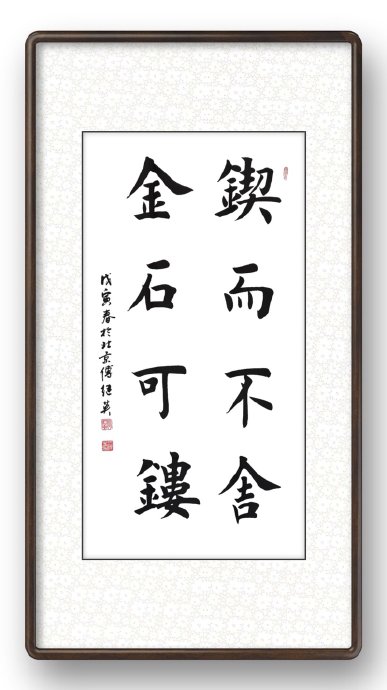 鍥而不舍
金石可鏤
戊寅春於北京傅继英